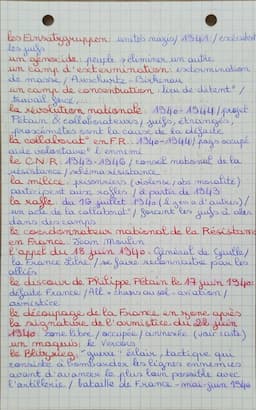 les Einsatzgruppen : unités nazis / 1941 / exécutent
les juifs
un génocide : peuple → éliminer un autre
un camp d'extermination : extermination
de masse / Auschwitz - Birkenau
un camp de concentration : lieu de détent° /
travail forcé,...
la révolution nationale : 1940-1944 / projet
Pétain & collaborateurs / juifs, étrangers,
francs-maçons sont la cause de la défaite
la collaborat° en F.R. : 1940-1944 / pays occupé
aide volontaire l'ennemi
le C.N.R. : 1943-1946 / conseil national de la
résistance /
la milice : (violence/
participent aux rafles / à partir de 1943
la rafle du 16 juillet 1942 (il y en a d'autres) /
un acte de la collaborat° / forcent les juifs à aller
dans des camps
le coordonnateur national de la Résistance
en France : Jean Moulin
l'appel du 18 juin 1940 : Général de Gaulle /
la France Libre / se faire reconnaître par les
alliés
le discours de Philippe Pétain le 17 juin 1940 :
défaite France / All + chars au sol - aviation /
armistice
le découpage de la France en zone après
la signature de l'armistice du 22 juin
1940 : zone libre / occupée / annexée (voir carte)
un maquis : le Vercors
le Blitzkrieg : "guerre" éclair, tactique qui
consiste à bombarder les lignes ennemies
avant d'avancer le plus loin possible avec
l'artillerie / bataille de France - mai-juin 1940